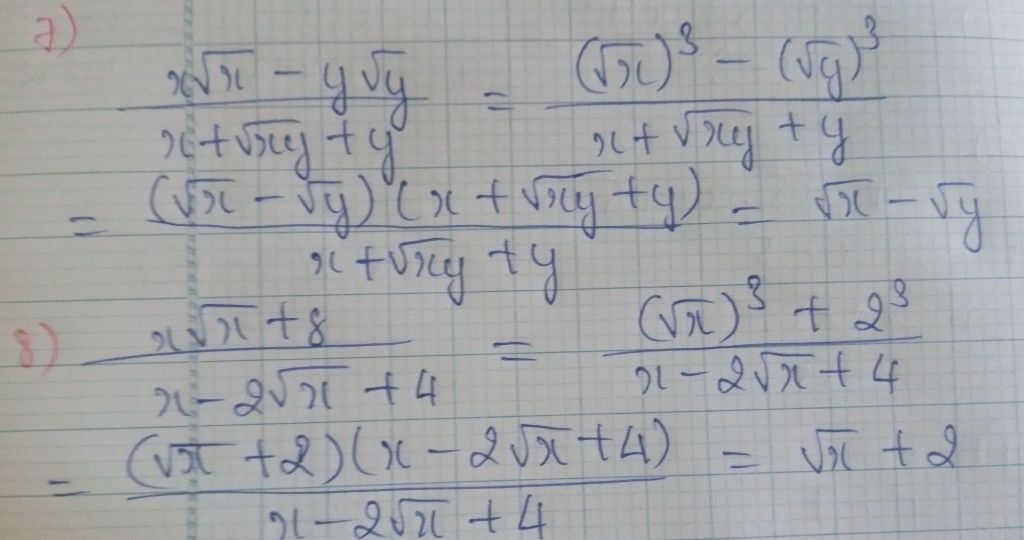 7)
(x√x − y√y)/(x + √xy + y) = ((√x)³ − (√y)³)/(x + √xy + y)
= ((√x − √y)(x + √xy + y))/(x + √xy + y) = √x − √y
8) (x√x + 8)/(x − 2√x + 4) = ((√x)³ + 2³)/(x − 2√x + 4)
= ((√x + 2)(x − 2√x + 4))/(x − 2√x + 4) = √x + 2